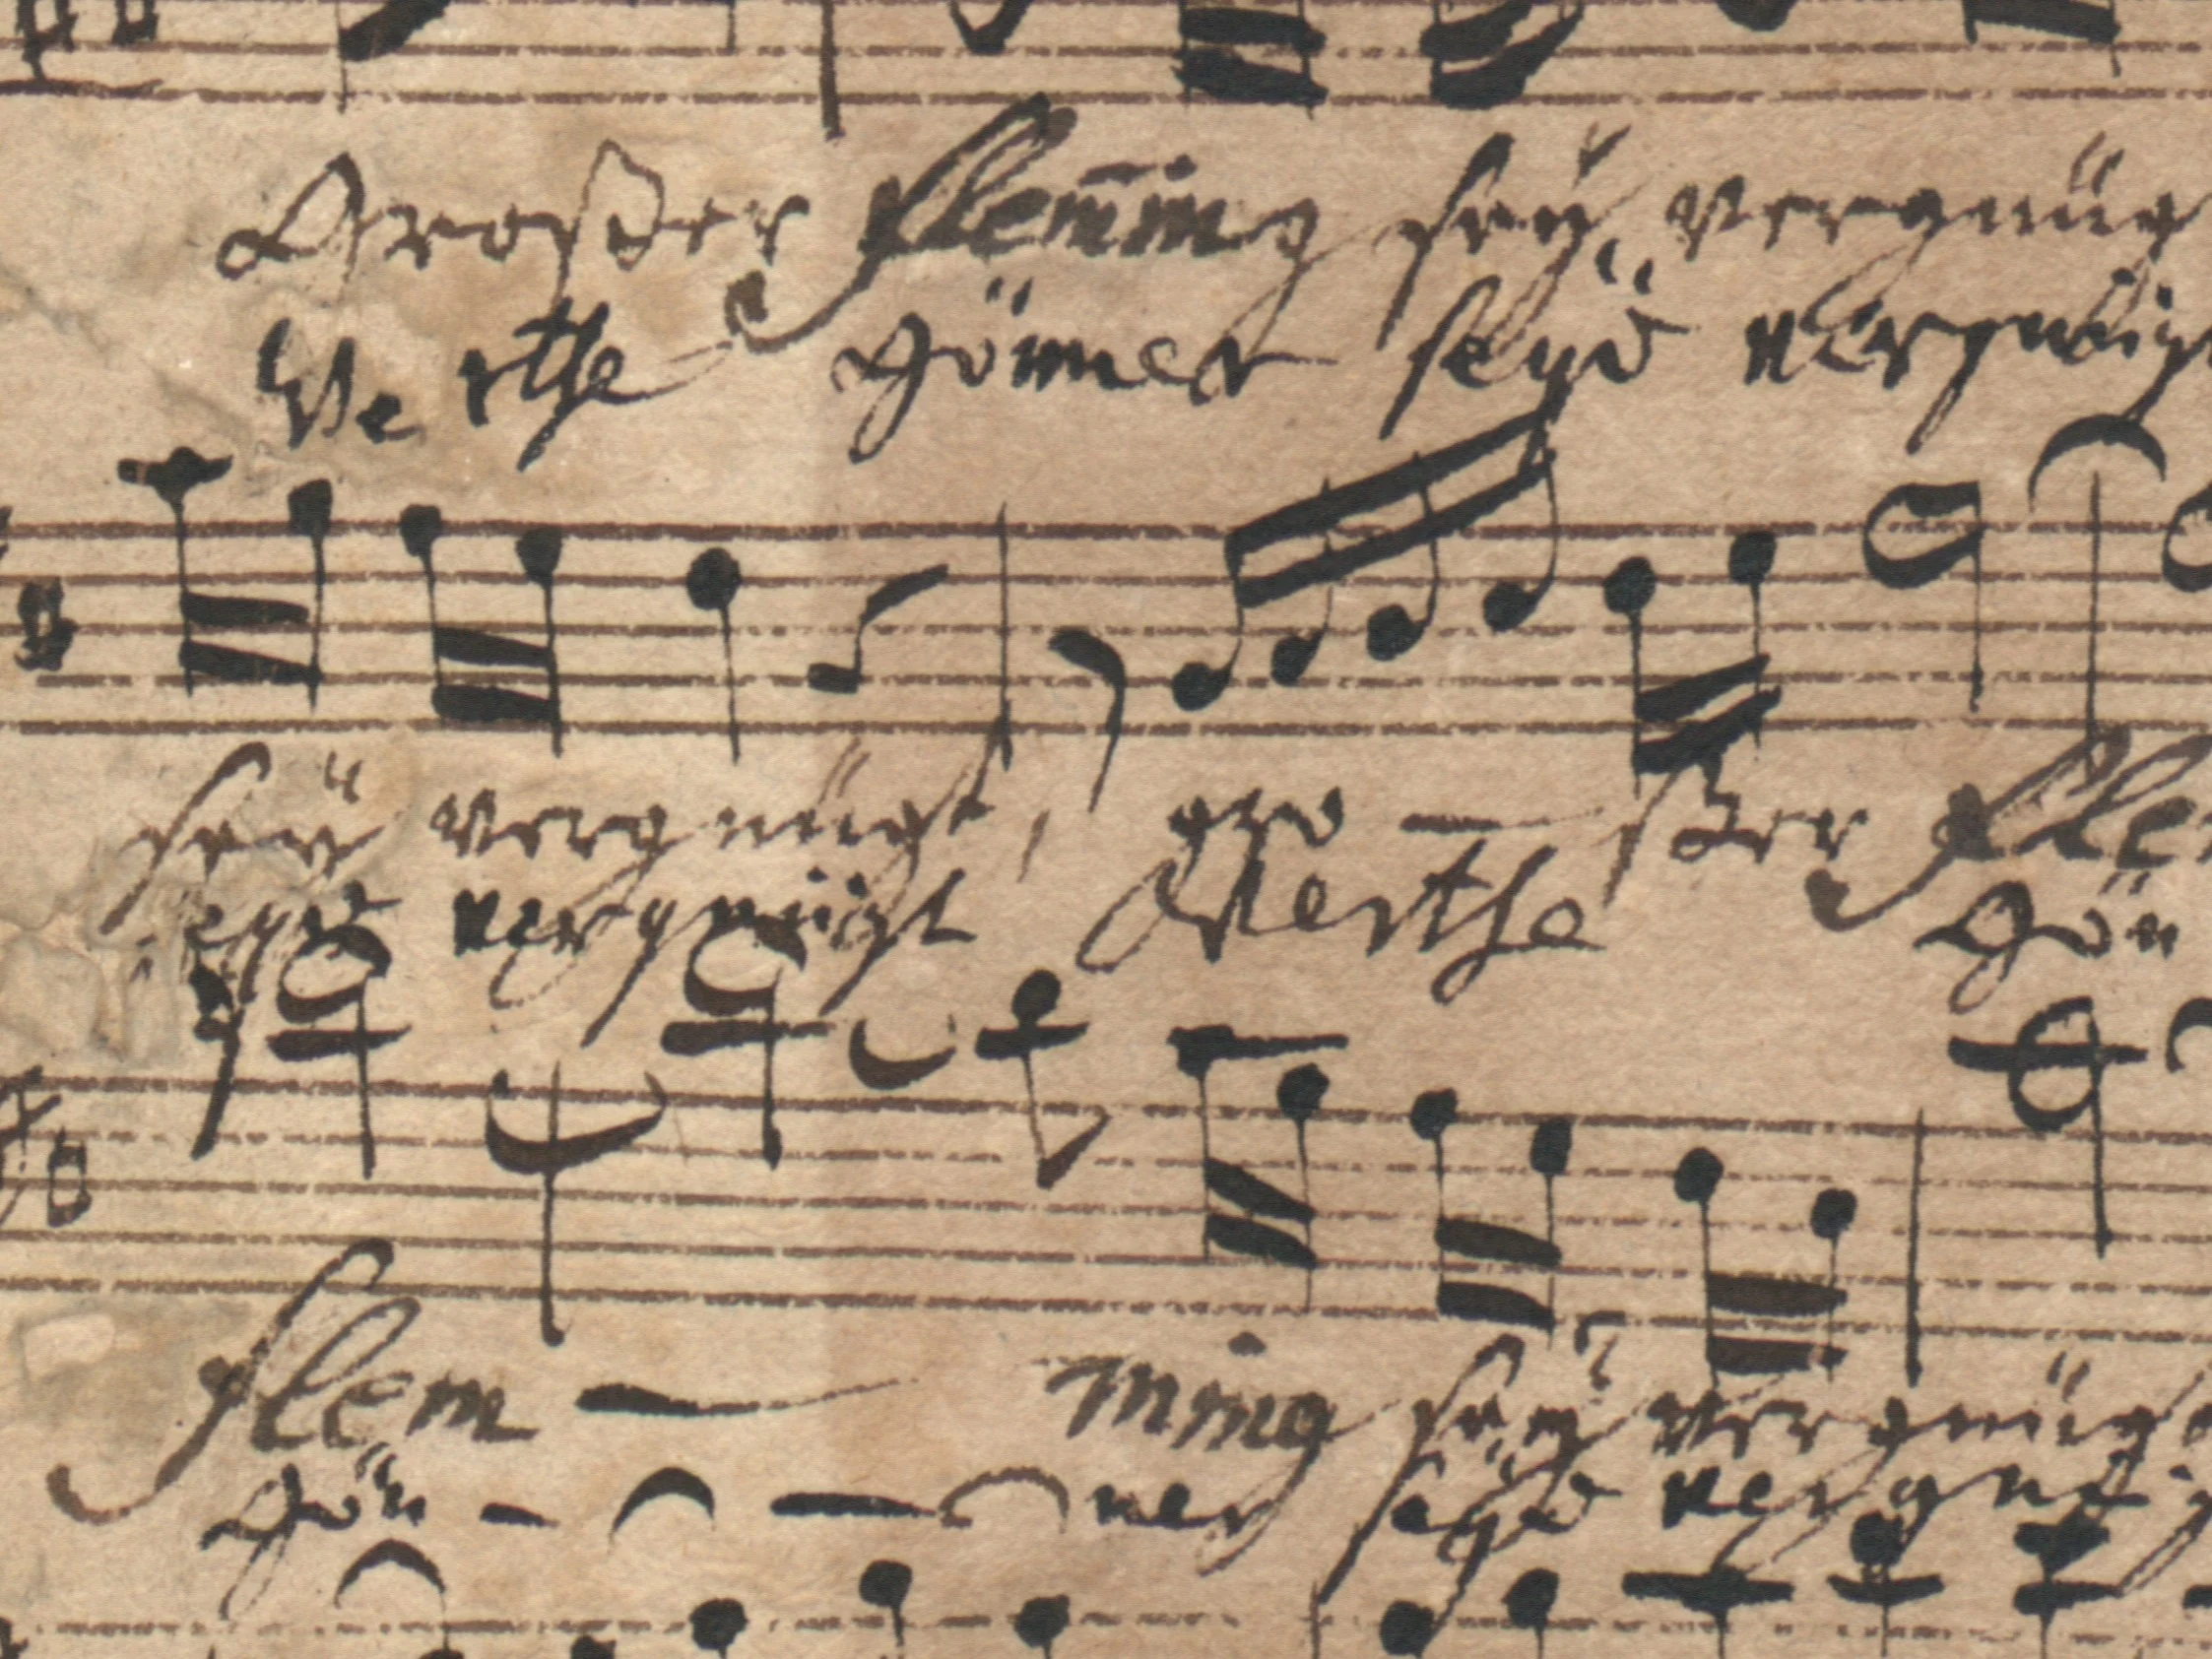 Großer Flem̅ing seÿ vergnüg
Werthe Gönner seÿd vergnügt
seÿ vergnügt, gro — ßer Fle
seÿd vergnügt Werthe Gön
Flem — ming seÿ vergnügt
Gön — — ner seÿd vergnü